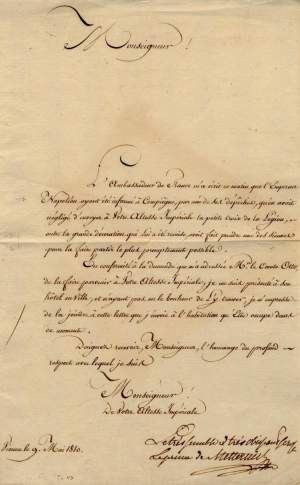 Monseigneur!
L'Ambassadeur de France m'a écrit ce matin que l'Empereur
Napoléon ayant été informé à Compiègne, par une de ses dépêches, qu'on avoit
négligé d'envoyer à Votre Altesse Impériale la petite croix de la Légion,
outre la grande décoration qui lui a été remise, avoit fait partir un des siennes
pour la faire porter le plus promptement possible.
En conformité à la demande que m'a adressée Mr. le Comte Otto,
de la faire parvenir à Votre Altesse Impériale, je me suis présenté à Son
hôtel en Ville, et n'ayant pas eu le bonheur de L'y trouver, je m'empresse
de la joindre à cette lettre que j'envoie à l'habitation qu'Elle occupe dans
ce moment.
Daignez recevoir, Monseigneur, l'hommage du profond
respect avec lequel je suis
Monseigneur!
De Votre Altesse Impériale
Vienne le 9. Mai 1810.
Le très humble & très obéissant Serv
Le prince de Metternich